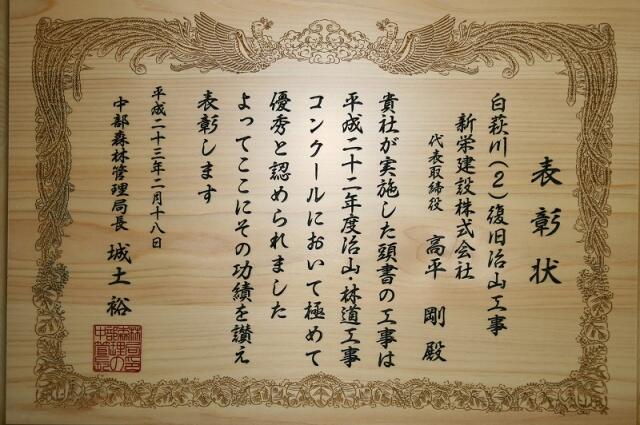 表彰状
白萩川(2)復旧治山工事
新栄建設株式会社
代表取締役 高平 剛 殿
貴社が実施した頭書の工事は
平成二十二年度治山・林道工事
コンクールにおいて極めて
優秀と認められました
よってここにその功績を讃え
表彰します
平成二十三年二月十八日
中部森林管理局長 城土 裕